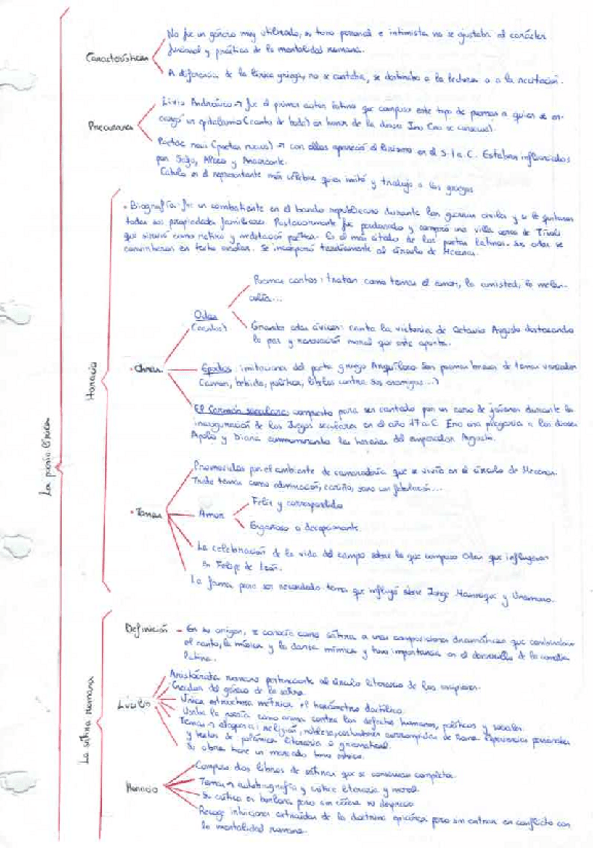 La poesía lírica
Características
No fue un género muy utilizado, su tono personal e intimista no se ajustaba al carácter
funcional y práctico de la mentalidad romana.
A diferencia de la lírica griega, no se cantaba, se destinaba a la lectura o a la recitación.
Precursores
Livio Andrónico → fue el primer autor latino que compuso este tipo de poemas a quien se en-
cargó un epitalamio (canto de boda) en honor de la diosa Juno
Poetae novi (poetas nuevos) → con ellos apareció el lirismo en el S. I a. C. Estaban influenciados
por Safo, Alceo y Anacreonte.
Catulo es el representante más célebre quien imitó y tradujo a los griegos
Horacio
• Biografía: fue un combatiente en el bando republicano durante las guerras civiles y le quitaron
todas sus propiedades familiares. Posteriormente fue perdonado y compró una villa cerca de Tívoli
que sirvió como retiro y meditación poética. Es el más citado de los poetas latinos. Sus odas se
convirtieron en texto escolar. Se incorporó tardíamente al círculo de Mecenas.
• Obras
Odas
(Carmina)
Poemas cortos: tratan como temas el amor, la amistad, la melan-
colía...
Grandes odas cívicas: canta la victoria de Octavio Augusto destacando
la paz y renovación moral que este aporta.
Epodos: imitaciones del poeta griego Arquíloco. Son poemas breves de temas variados
(amor, bebida, política, libelos contra sus enemigos...)
El Carmen saeculare: compuesto para ser cantado por un coro de jóvenes durante la
inauguración de los Juegos seculares en el año 17 a. C. Era una plegaria a los dioses
Apolo y Diana conmemorando las hazañas del emperador Augusto.
• Temas
Promovidos por el ambiente de camaradería que se vivía en el círculo de Mecenas.
Trata temas como admiración, cariño,
Amor
Feliz y correspondido
Engañoso o decepcionante.
La celebración de la vida del campo sobre la que compuso Odas que influyeron
en Felipe de León.
La fama para ser recordado tema que influyó sobre Jorge Manrique y Unamuno.
La sátira romana
Definición - En su origen, se conocía como sátira a unas composiciones dramáticas que combinaban
el canto, la música y la danza mímica y tuvo importancia en el desarrollo de la comedia
latina.
Lucilio
Aristócrata romano perteneciente al círculo literario de los escipiones.
Creador del género de la sátira.
Única estructura métrica el hexámetro dactílico.
Usaba la poesía como arma contra los defectos humanos, políticos y sociales.
Temas → religión, costumbres corrompidas de Roma. Experiencias personales
y textos de polémica literaria o gramatical.
Su obra tiene un marcado tono
Horacio
Compuso dos libros de sátiras que se conservan completos.
Temas → autobiografía y crítica literaria y moral.
Su crítica es burlona pero sin cólera ni desprecio
Recoge intenciones extraídas de la doctrina epicúrea pero sin entrar en conflicto con
la mentalidad romana.